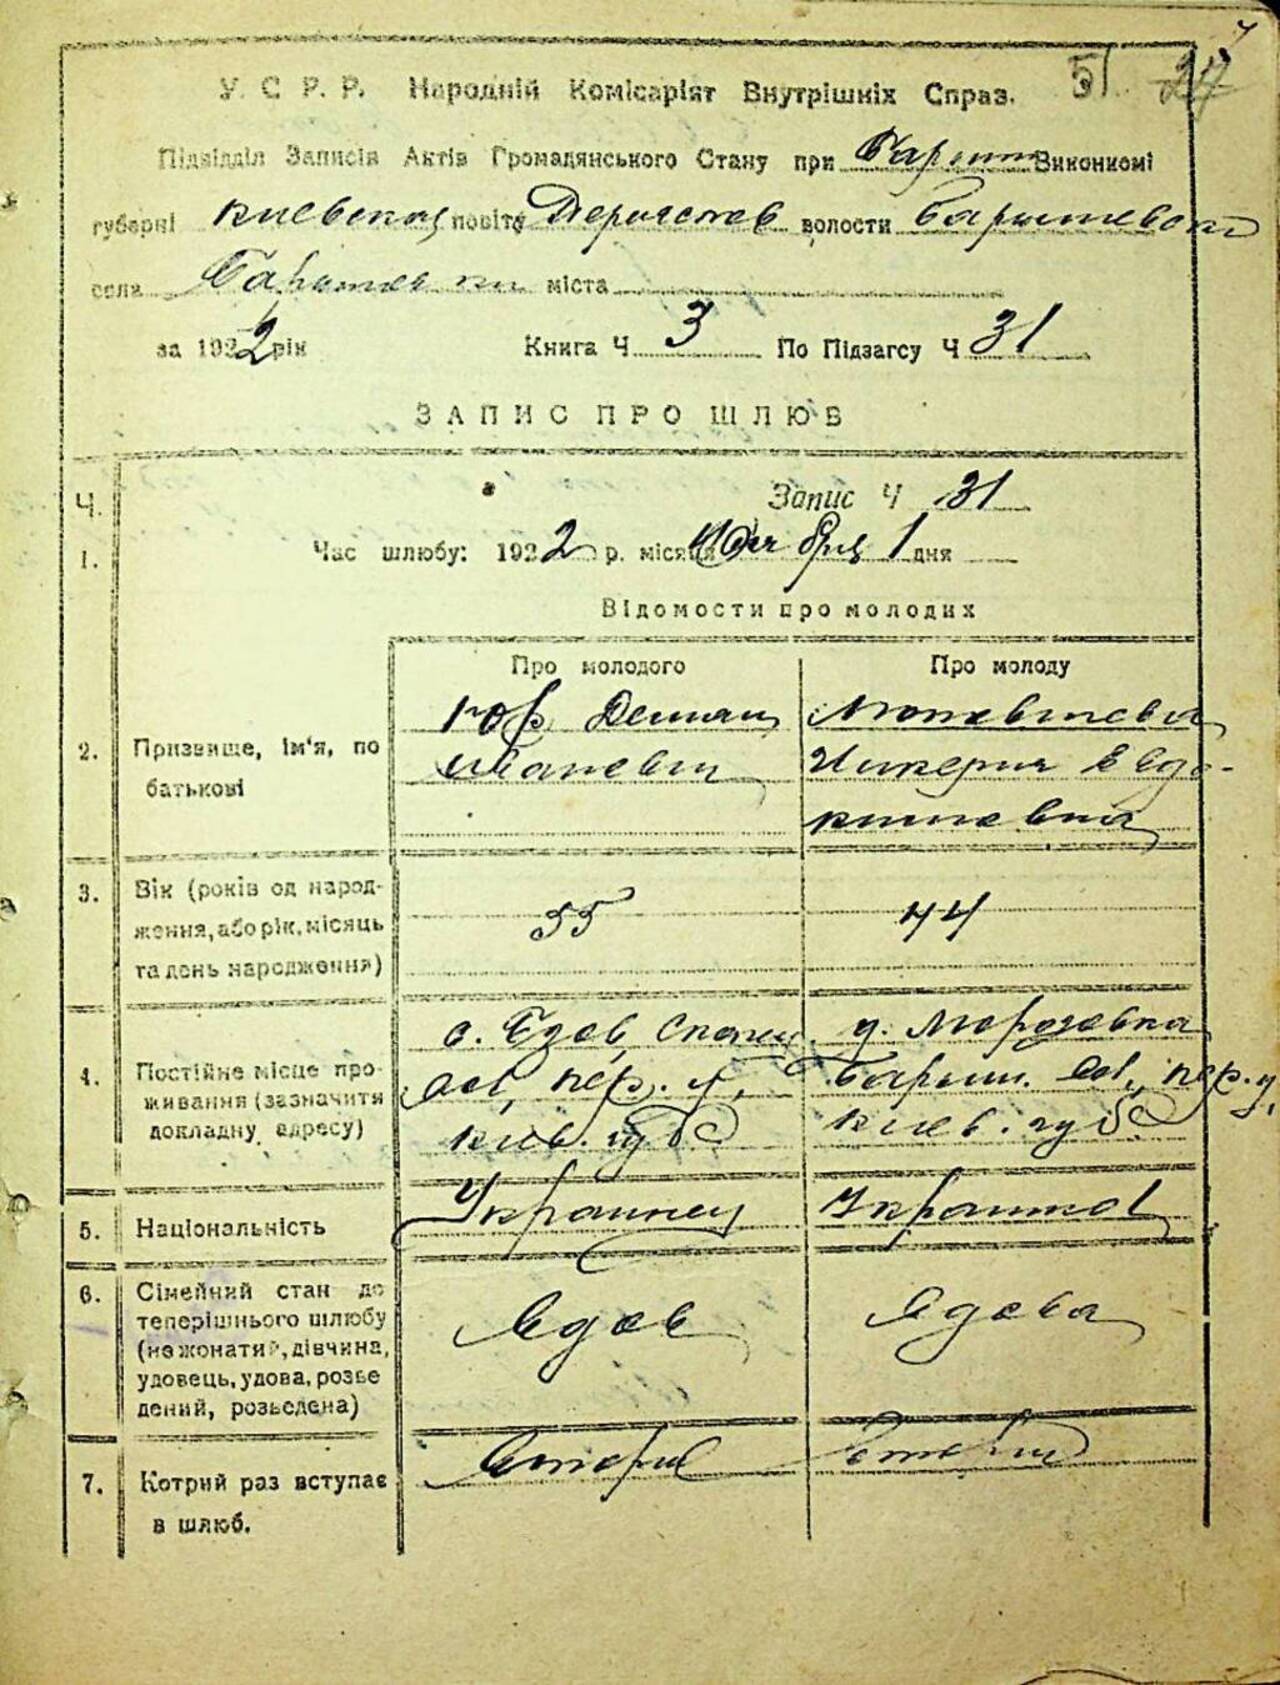 У. С. Р. Р. Народній Комісаріят Внутрішніх Справ. 51 27
Підвідділ Записів Актів Громадянського Стану при Бариш Виконкомі
губерні Киевской повіту Переяслав волости Барышевской
села Барышевки міста
за 1922 рік Книга Ч 3 По Підзагсу Ч 31
ЗАПИС ПРО ШЛЮБ
Ч. Запис Ч 31
1. Час шлюбу: 1922 р. місяця 1 дня
Відомости про молодих
Про молодого Про молоду
2. Призвище, ім'я, по батькові
Демьян
Иванович
Никерия Евдо-
кимовна
3. Вік (років од народ-
ження, або рік, місяць
та день народження)
55 44
4. Постійне місце про-
живання (зазначити
докладну адресу)
с.
вол, пер. у,
киев. губ
д. Морозовка
Барыш. вол, пер. у,
киев. губ.
5. Національність Украинец Украинка
6. Сімейний стан до
теперішнього шлюбу
(нежонатий, дівчина,
удовець, удова, розве
дений, розведена)
Вдов Вдова
7. Котрий раз вступає
в шлюб.
Вторий Вторий